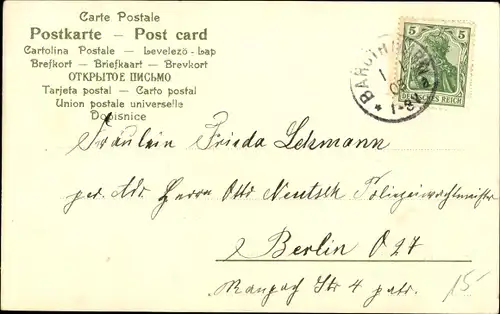 Carte Postale
Postkarte – Post card
Cartolina Postale – Levelezö-Lap
Brefkort – Briefkaart – Brevkort
ОТКРЫТОЕ ПИСЬМО
Tarjeta postal – Carto postal
Union postale universelle
Dopisnice
5 5
DEUTSCHES REICH
Fräulein Frieda Lehmann
per. Adr. Herrn Otto Neutsch Polizeiwachtmeister
Berlin O 27
Str 4 patr.
15